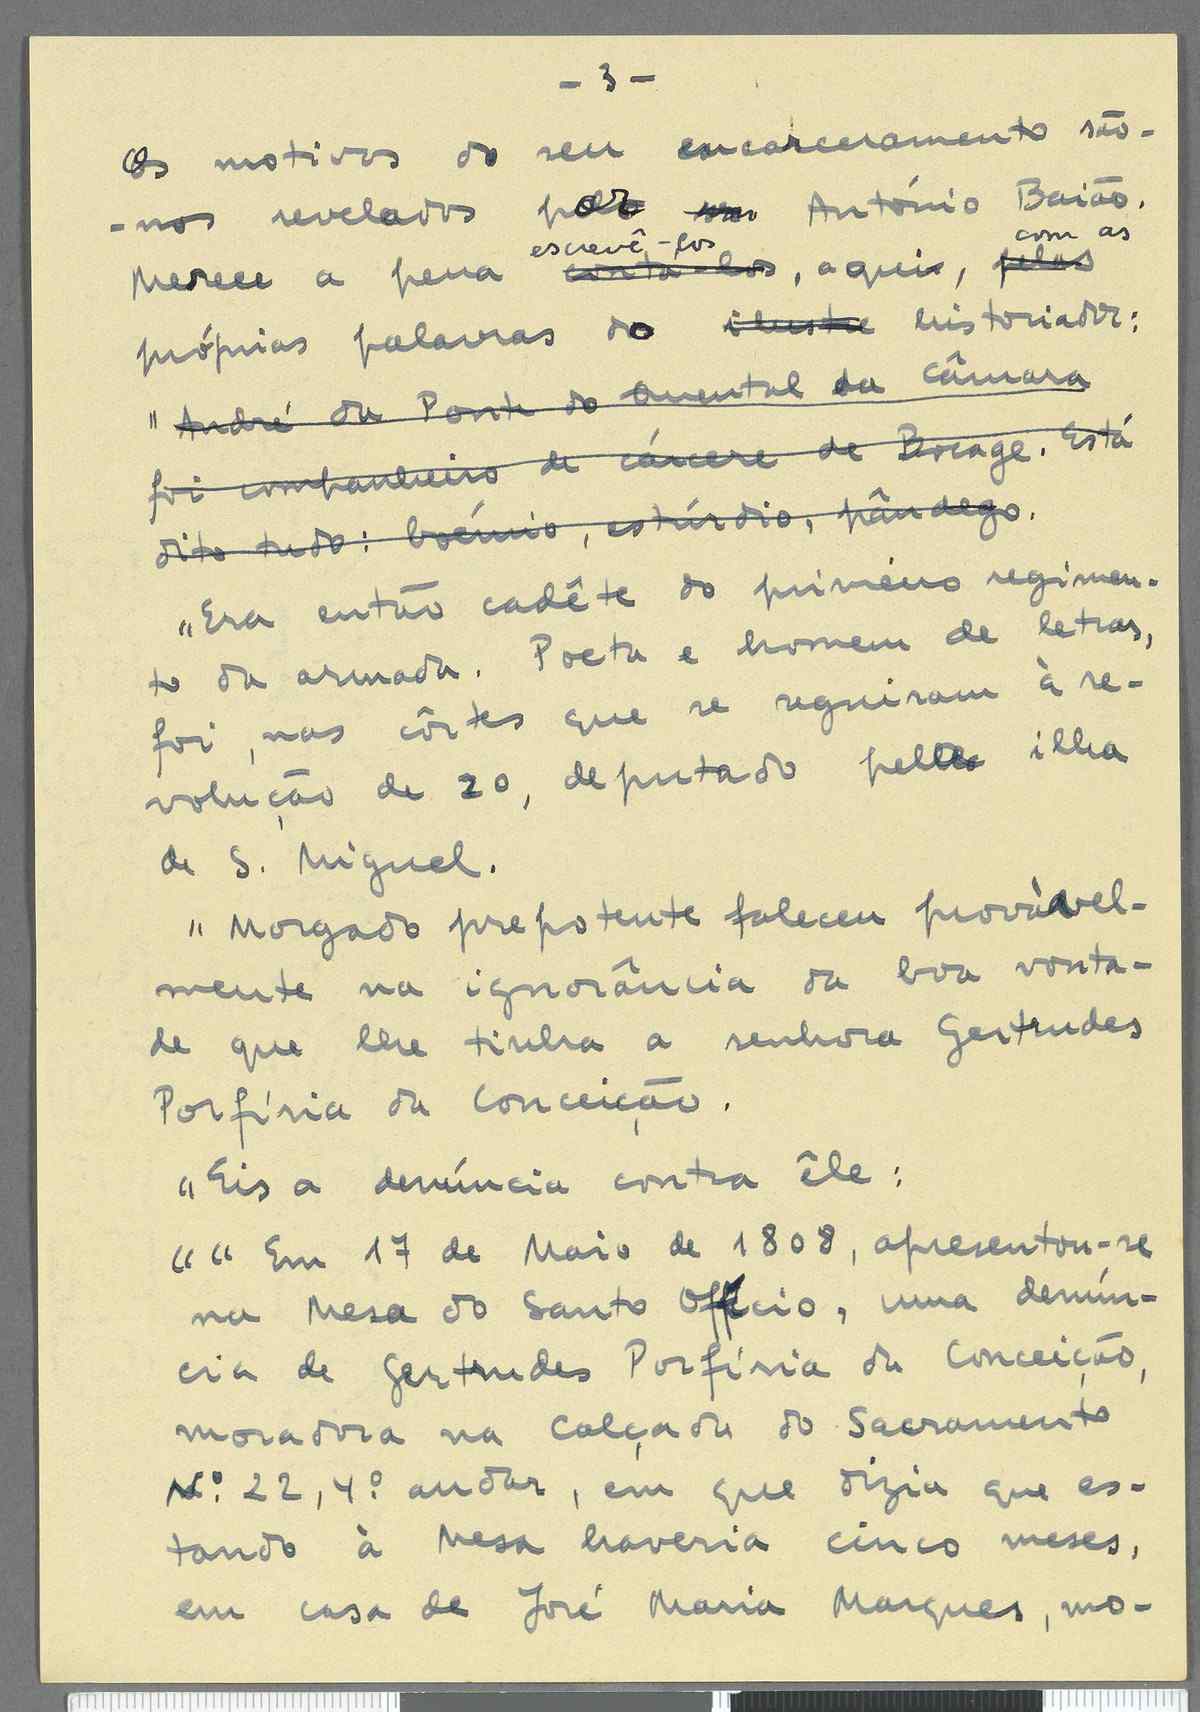 - 3 -
Os motivos do seu encarceramento são-
-nos revelados por António Baião.
escrevê-los com as
Merece a pena contá-los, aqui, pelas
próprias palavras do ilustre historiador:
"André da Ponte do Quental da Câmara
foi companheiro de cárcere de Bocage. Está
dito tudo: boémio, estúrdio, pândego.
"Era então cadête do primeiro regimen-
to da armada. Poeta e homem de letras,
foi, nas côrtes que se seguiram à re-
volução de 20, deputado pela ilha
de S. Miguel.
"Morgado prepotente faleceu provàvel-
mente na ignorância da boa vonta-
de que lhe tinha a senhora Gertrudes
Porfíria da Conceição.
"Eis a denúncia contra êle:
"" Em 17 de Maio de 1808, apresentou-se
na Mesa do Santo Offício, uma denún-
cia de Gertrudes Porfíria da Conceição,
moradora na Calçada do Sacramento
N.º 22, 4.º andar, em que dizia que es-
tando à Mesa haveria cinco meses,
em casa de José Maria Marques, mo-